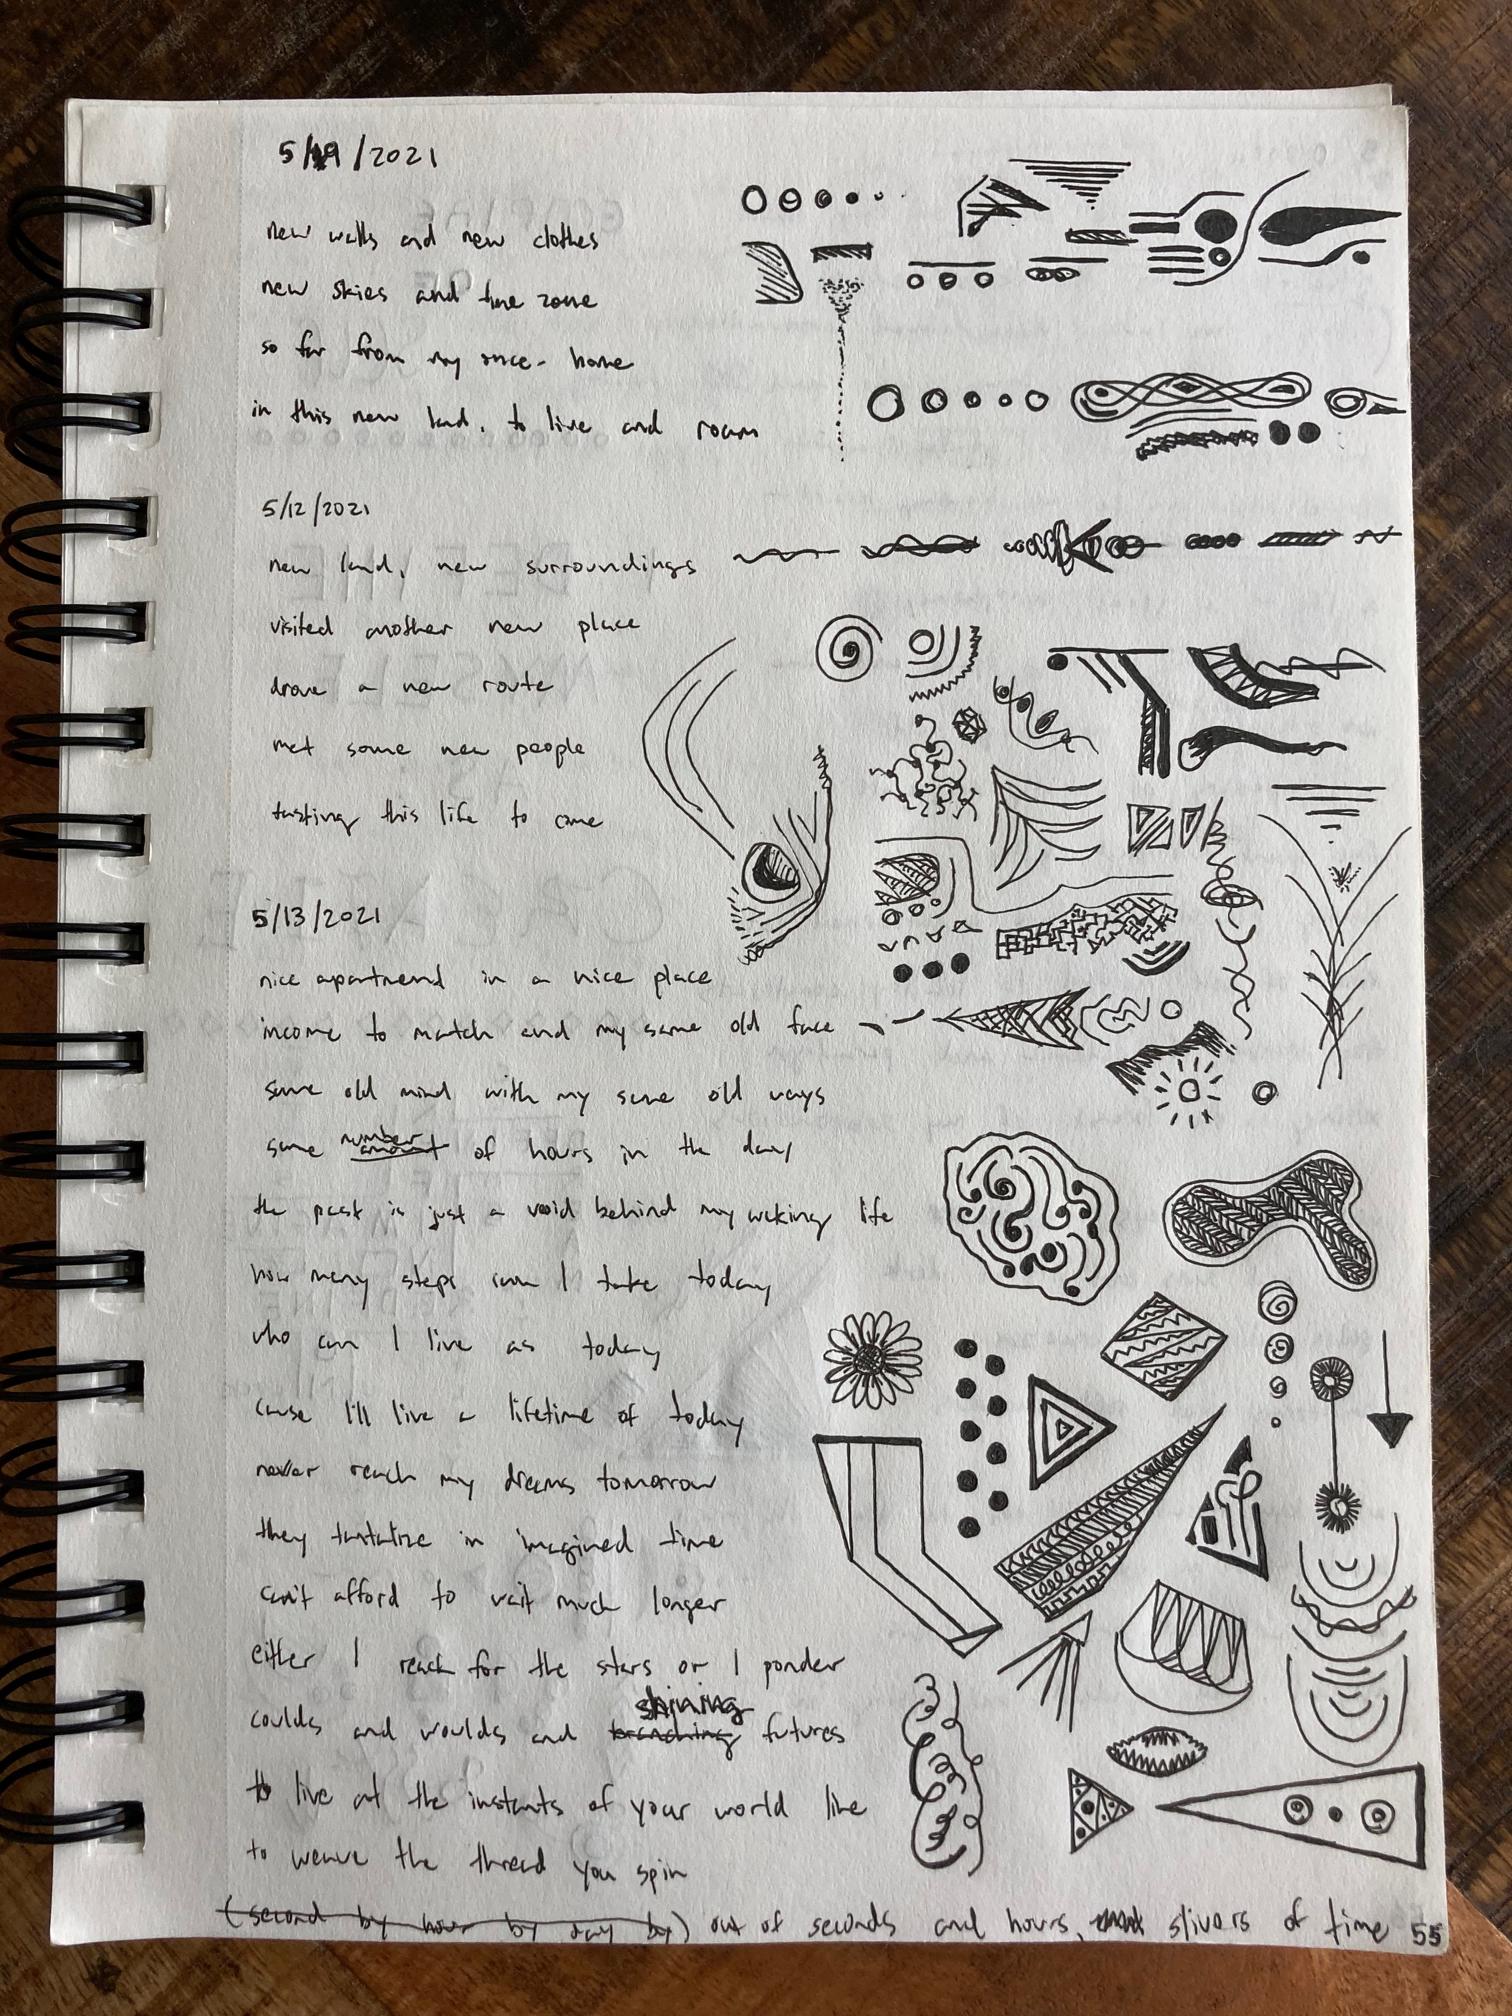 5/19/2021
new walls and new clothes
new skies and time zone
so far from my once-home
in this new land, to live and roam
5/12/2021
new land, new surroundings
visited another new place
drove a new route
met some new people
tasting this life to come
5/13/2021
nice apartment in a nice place
income to match and my same old face
same old mind with my same old ways
same number amount of hours in the day
the past is just a void behind my waking life
how many steps can I take today
who can I live as today
cause I'll live a lifetime of today
never reach my dreams tomorrow
they tantalize in imagined time
can't afford to wait much longer
either I reach for the stars or I ponder
shining
coulds and woulds and branching futures
to live at the instants of your world line
to weave the thread you spin
(second by hour by day by) out of seconds and hours, slivers of time 55